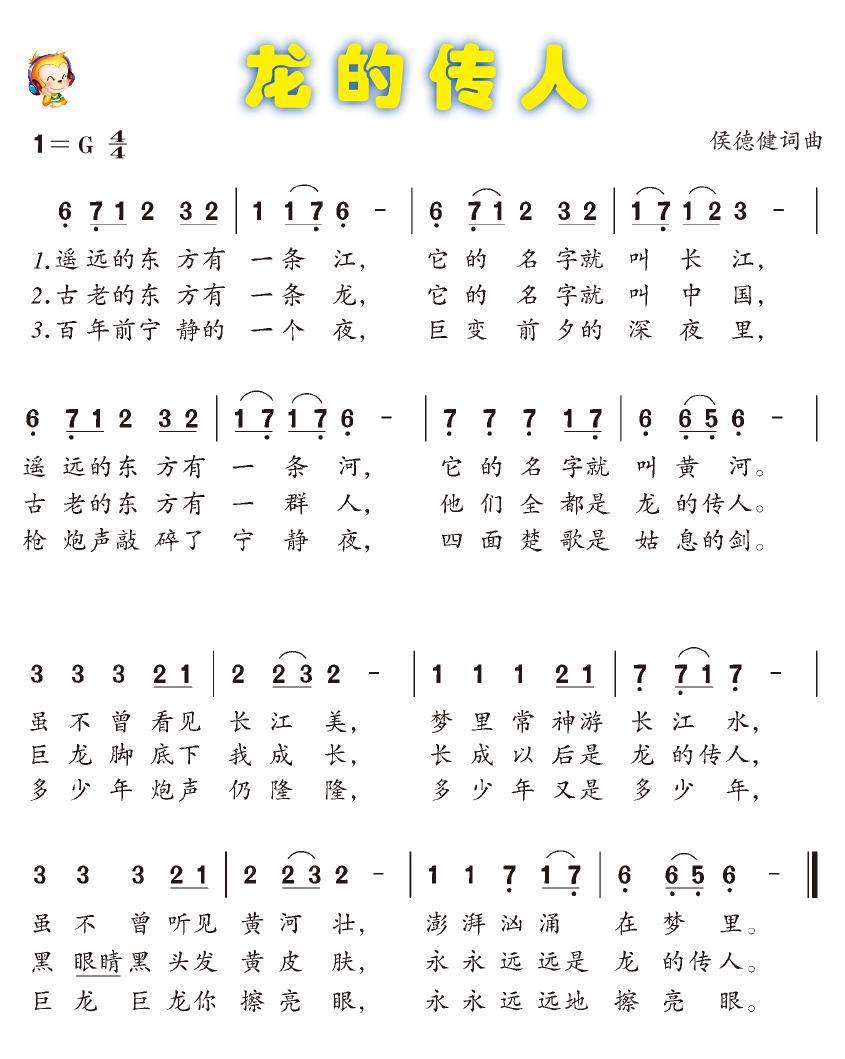 龙的传人
1=G 4/4 侯德健词曲
6 7 1 2 3 2 | 1 1 7 6 - | 6 7 1 2 3 2 | 1 7 1 2 3 - |
1.遥远的东方有一条江，它的名字就叫长江，
2.古老的东方有一条龙，它的名字就叫中国，
3.百年前宁静的一个夜，巨变前夕的深夜里，
6 7 1 2 3 2 | 1 7 1 7 6 - | 7 7 7 1 7 | 6 6 5 6 - |
遥远的东方有一条河，它的名字就叫黄河。
古老的东方有一群人，他们全都是龙的传人。
枪炮声敲碎了宁静夜，四面楚歌是姑息的剑。
3 3 3 2 1 | 2 2 3 2 - | 1 1 1 2 1 | 7 7 1 7 - |
虽不曾看见长江美，梦里常神游长江水，
巨龙脚底下我成长，长成以后是龙的传人，
多少年炮声仍隆隆，多少年又是多少年，
3 3 3 2 1 | 2 2 3 2 - | 1 1 7 1 7 | 6 6 5 6 - ‖
虽不曾听见黄河壮，澎湃汹涌在梦里。
黑眼睛黑头发黄皮肤，永永远远是龙的传人。
巨龙巨龙你擦亮眼，永永远远地擦亮眼。